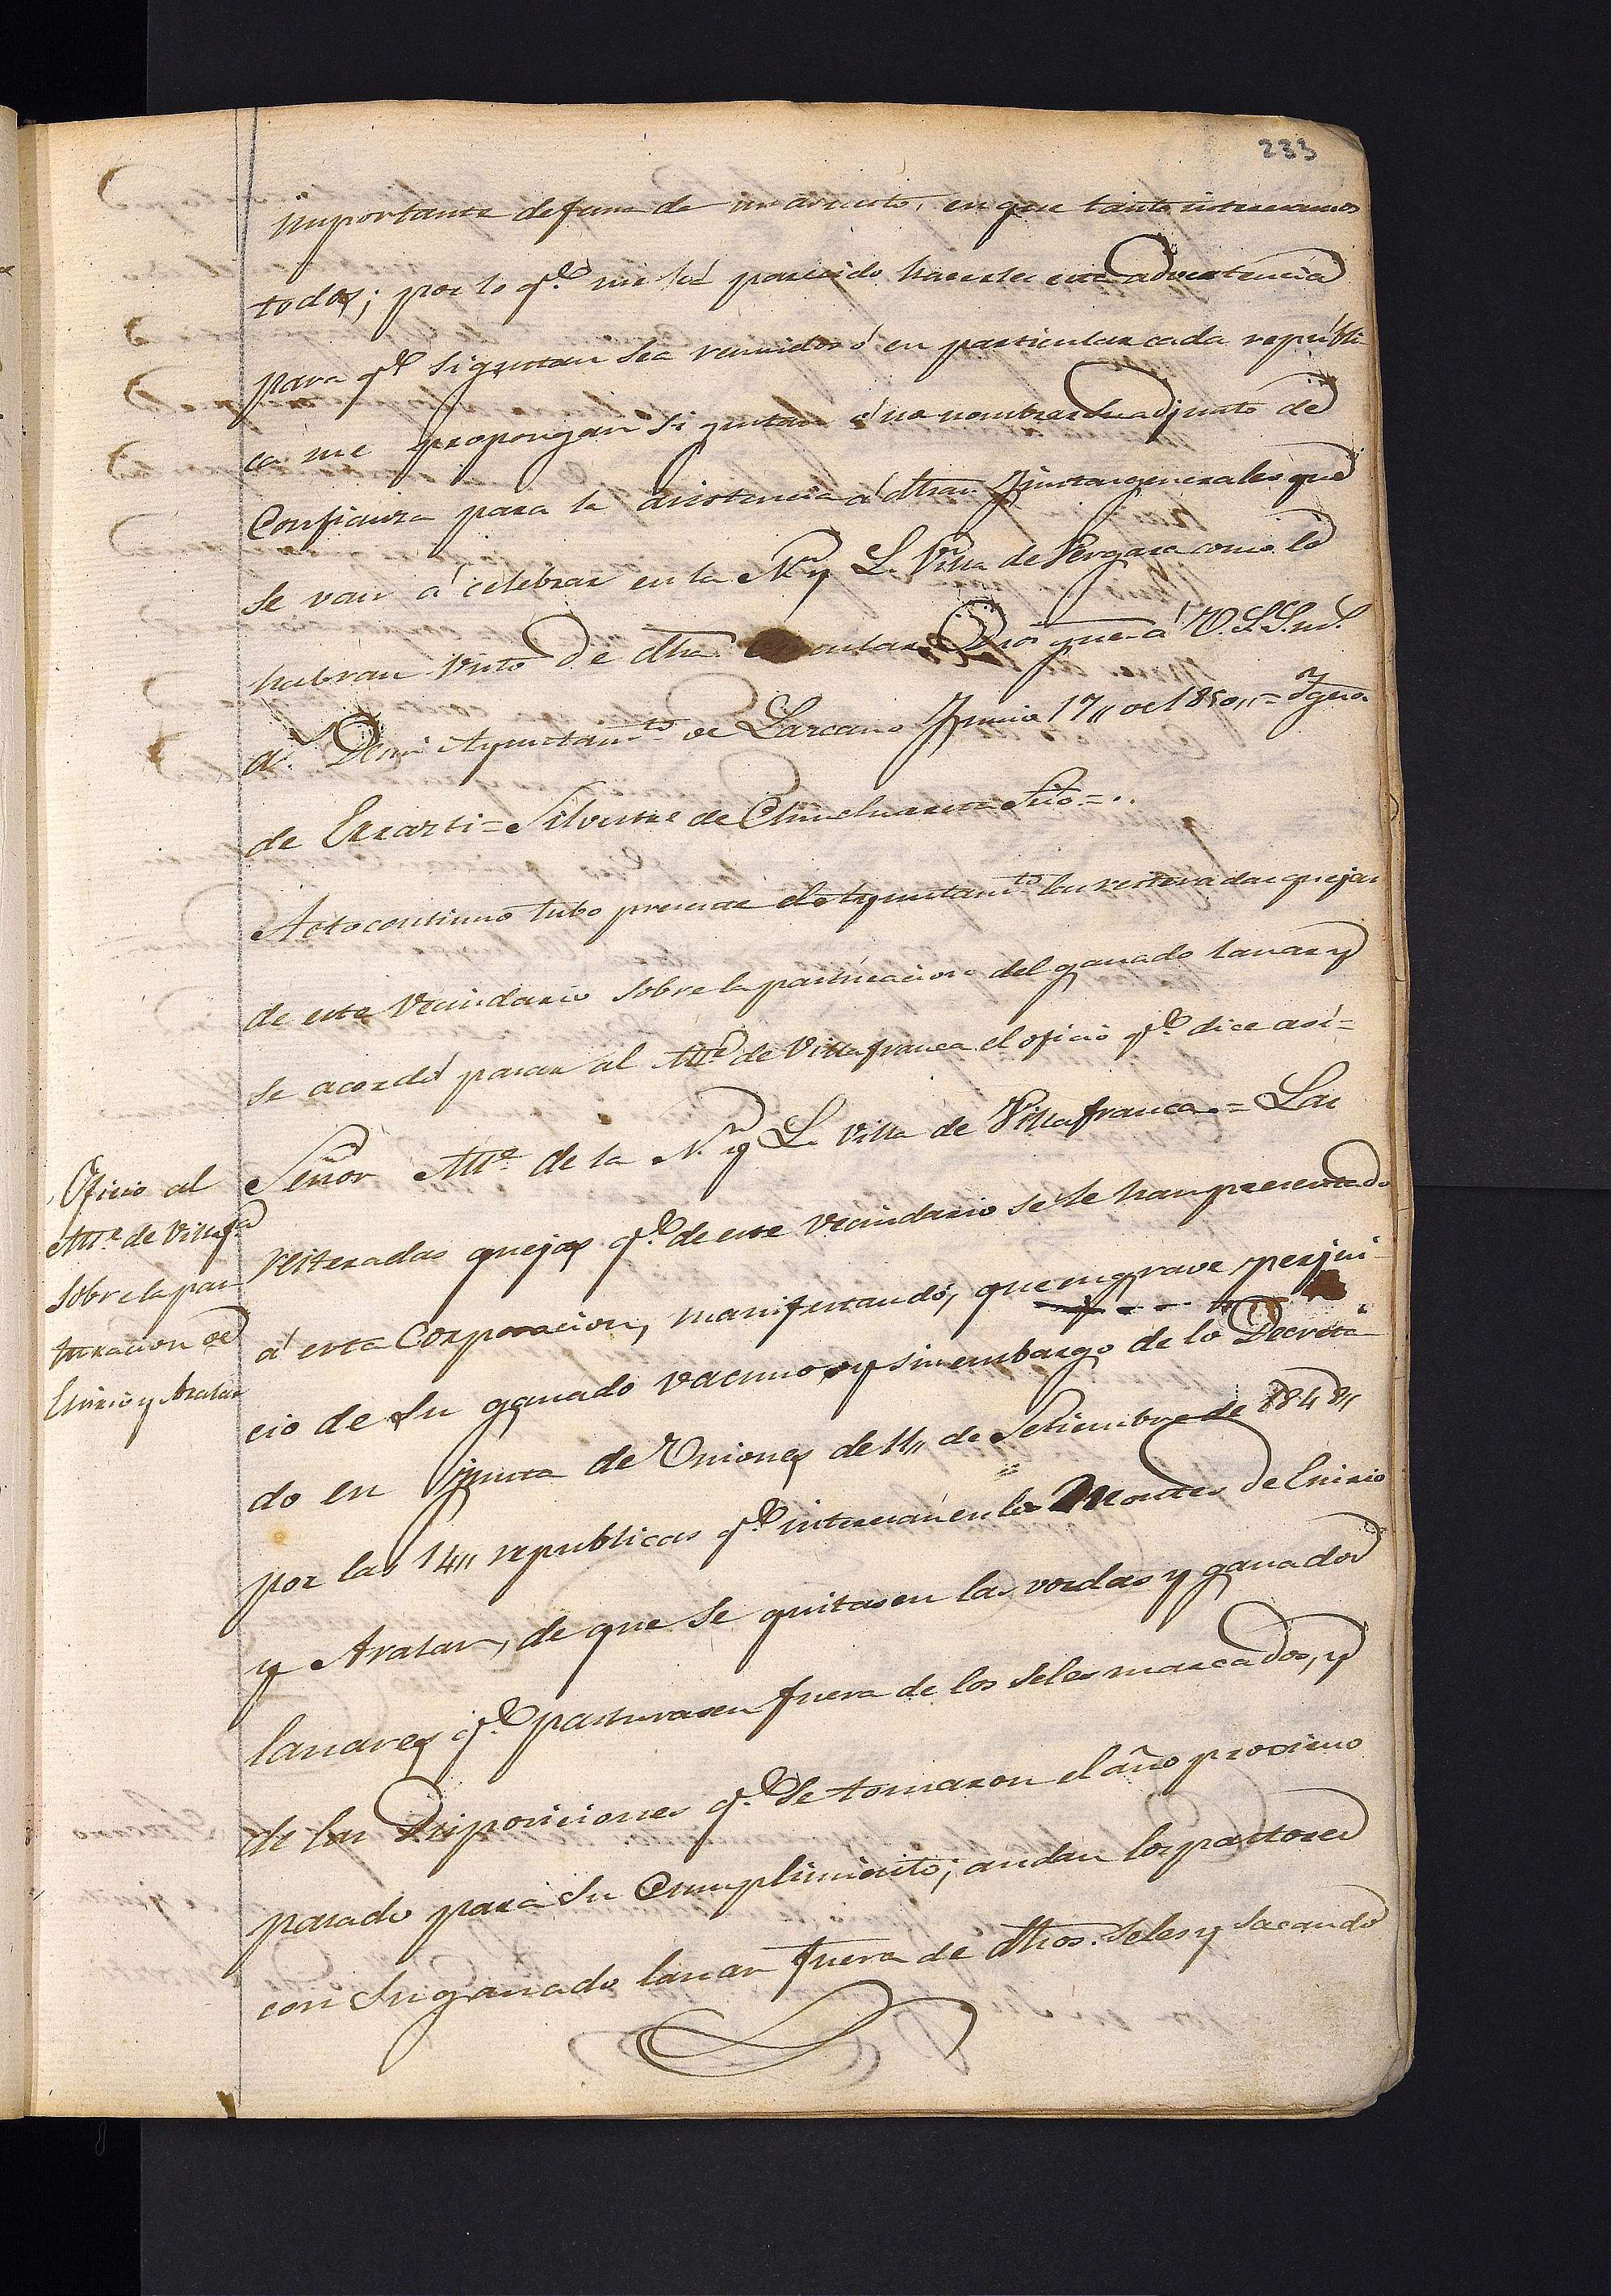 233
importante defensa de un asunto, en que tanto interesamos
todos; por lo q.e me há parecido hacerles esta advertencia
para q.e si gustan sea reunidos ó en particular cada repúbli
ca me propongan si gustan ó no nombrar su adjunto de
Confianza para la asistencia á dhas Juntas generales que
se van á celebrar en la N. y L. Villa de Vergara como lo
habran visto de dha Dios gue. á V.S.S. m.s
a.s De mi Ayuntam.to de Lazcano Junio 17,, de 1850,, = Ygno.
de Errarti = Silvestre de Chinchurreta Srio = ..
Acto continuo tubo presente el Ayuntam.to las reiteradas quejas
de este Vecindario sobre la pasturacion del ganado lanar y
se acordó pasar al Alle de Villafranca el oficio q.e dice así =
Señor Alle de la N. y L. Villa de Villafranca = Las
reiteradas quejas q.e de este Vecindario se le han presentado
á esta Corporacion, manifestando, que en grave perjui
cio de su ganado vacuno y sin embargo de lo Decreta
do en Junta de Uniones de 11,, de Setiembre de 1848,,
por las 14,, republicas q.e interesan en los Montes de Enirio
y Aralar, de que se quitasen las vordas y ganados
lanares q.e pasturasen fuera de los seles marcados, y
de las Disposiciones q.e se tomaron el año procsimo
pasado para su Cumplimiento; andan los pastores
con su ganado lanar fuera de dhos. Seles y sacando
Oficio al
Alle de Villaf.a
sobre la pas
turacion de
Enirio y Aralar